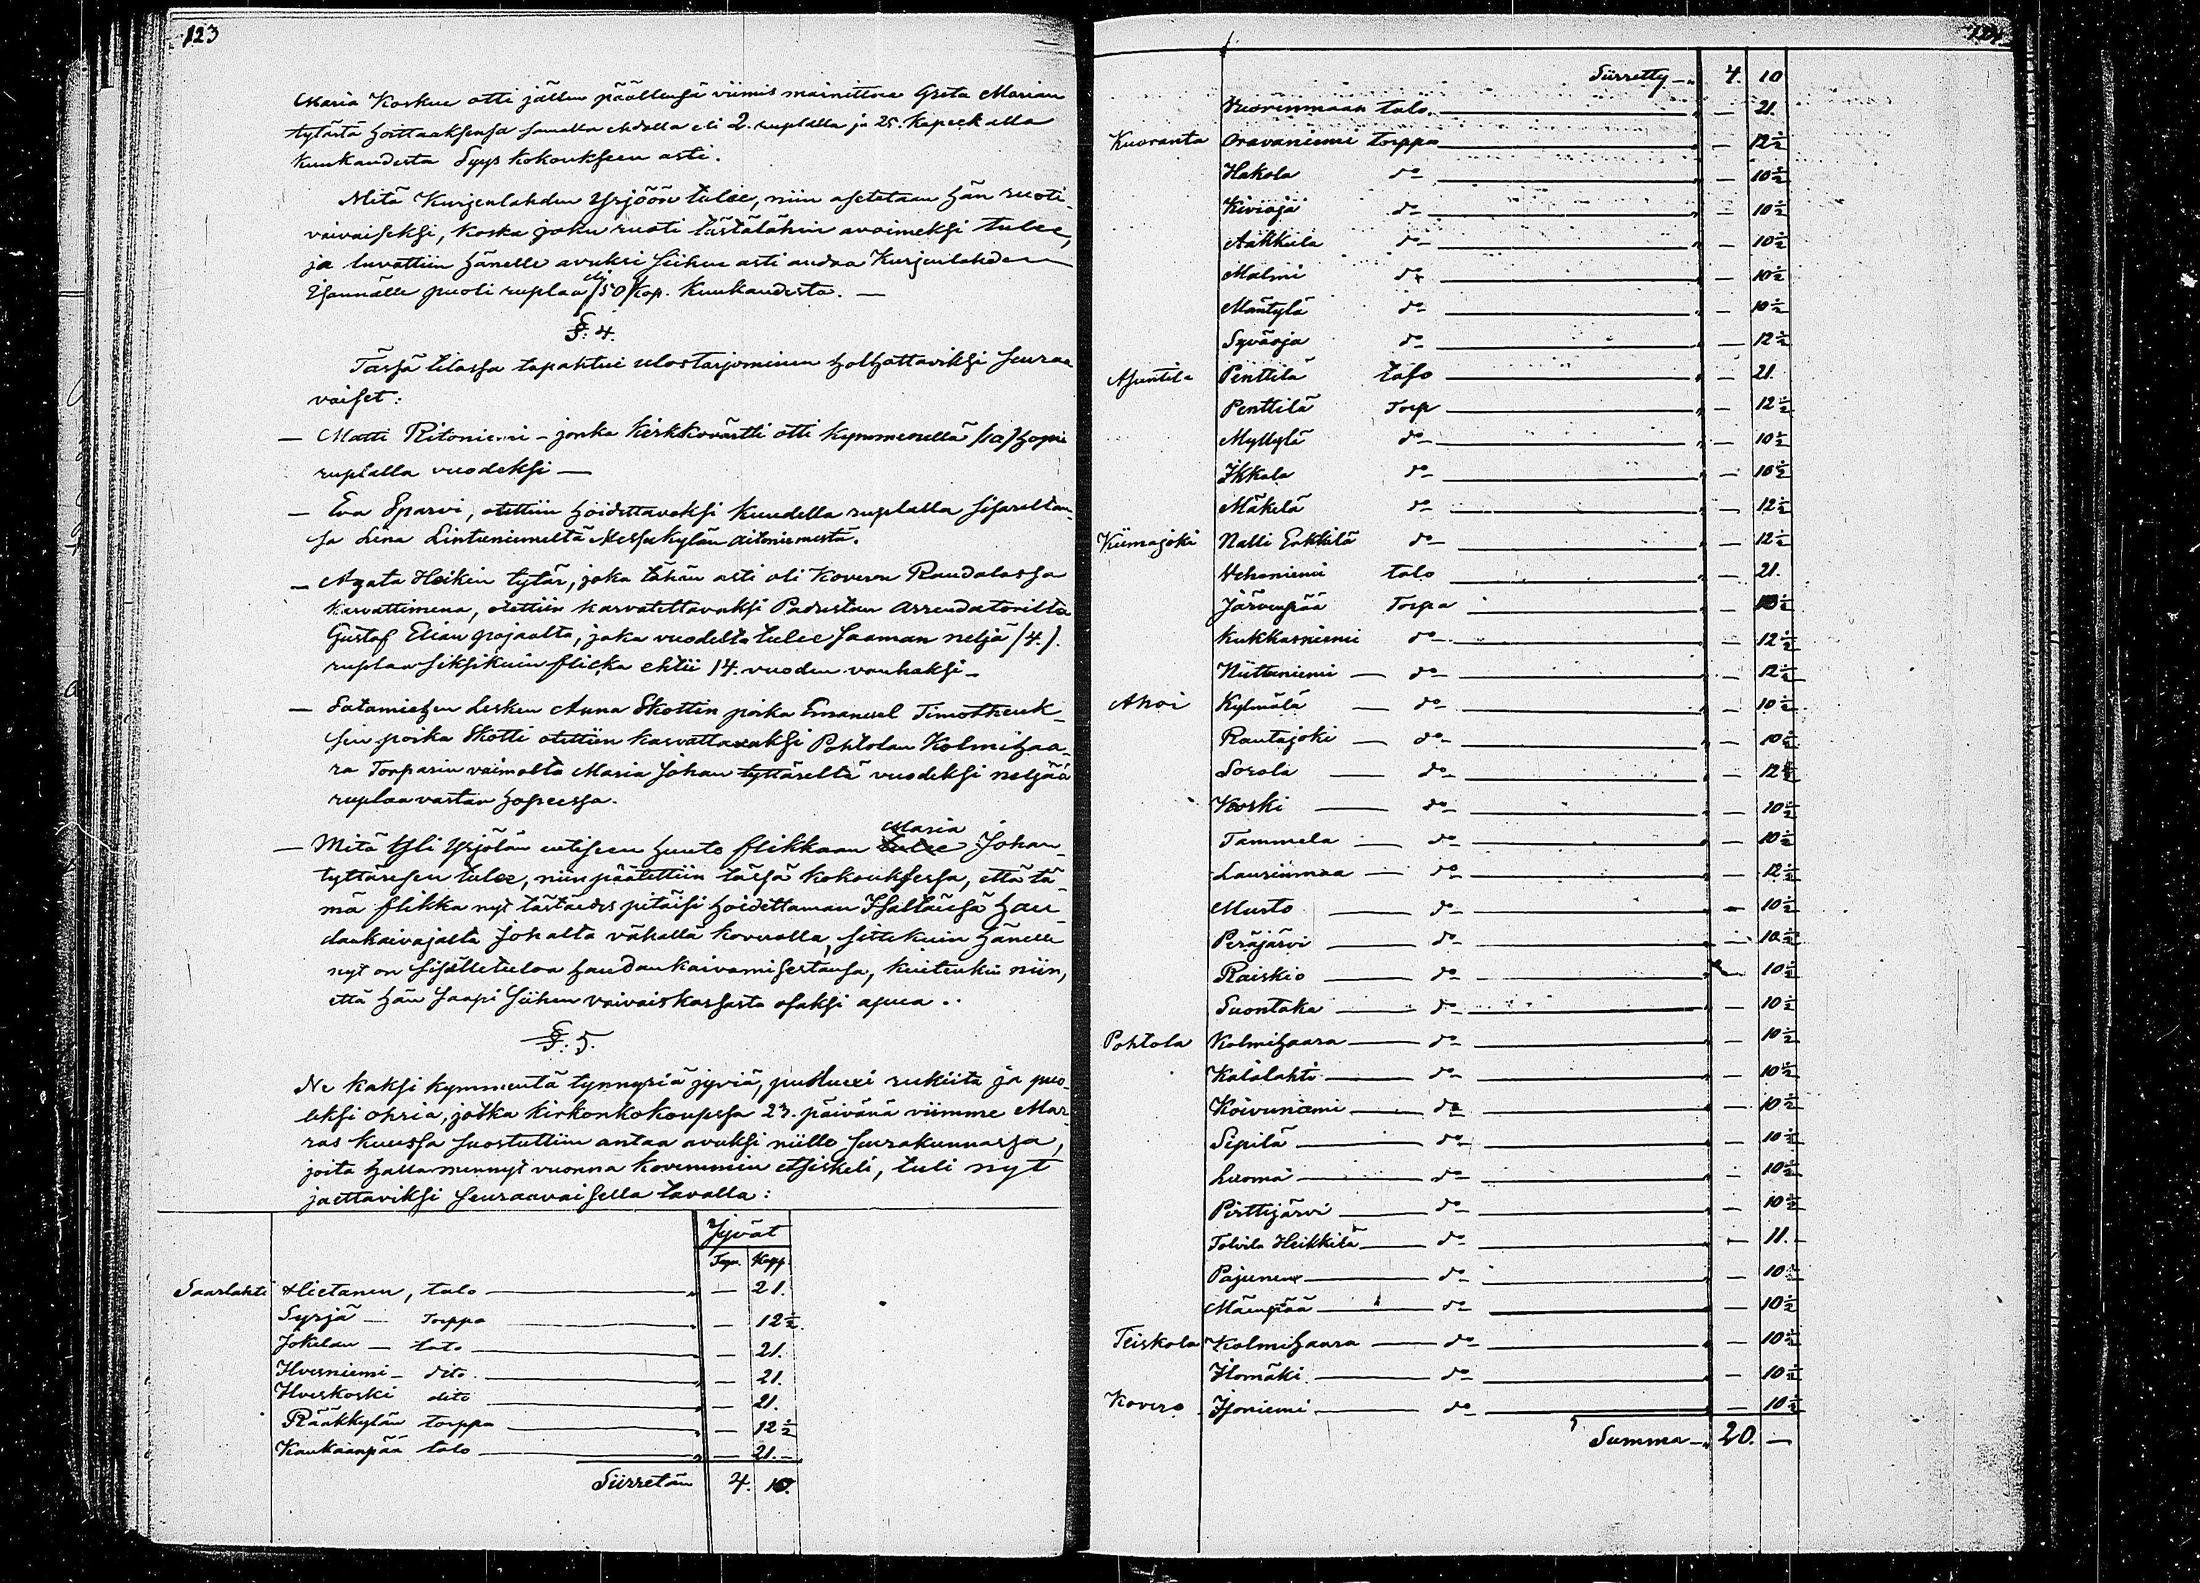 123
Maria Koskue otti jällen päällensä viimis mainittua Greta Marian
tytärtä hoittaaksensa samalla ehdolla eli 2. ruplalla ja 25. Kapeekalla
Kuukaudesta Syys kokoukseen asti.
Mitä Kurjenlahden Yrjöön tulee, niin asetetaan hän ruoti-
vaivaiseksi, koska joku ruoti tästälähin avoimeksi tulee,
ja luvattiin hänelle avuksi siihen asti andaa Kurjenlahden
Isännälle puoli ruplaa eli /50/ Kop. Kuukaudesta. —
§. 4.
Tässä tilassa tapahtui ulostarjominen holhottaviksi seuraa
vaiset:
— Matti Ritoniemi – jonka kirkkovärtti otti kymmenellä /10/ hopia
ruplalla vuodeksi —
— Eva Sparvi, otettiin hoidettavaksi kuudella ruplalla sisareltan-
sa Lena Lintuniemeltä Messukylän Aitoniemestä.
— Agata Heikin tytär, joka tähän asti oli Koveron Raudalassa
kasvattimena, otettiin kasvatettavaksi Padustan Arrendatorilta
Gustaf Elian pojaalta, joka vuodelta tulee saaman neljä /4/.
ruplaa siksikuin flicka ehtii 14. vuoden vanhaksi –
— Satamiehen Lesken Anna Skottin poika Emanuel Timotheuk-
sen poika Skotti otettiin kasvattavaksi Pohtolan Kolmihaa-
ra Torparin vaimolta Maria Johan tyttäreltä vuodeksi neljää
ruplaa vastan hopeessa.
Maria
— Mitä Yli Yrjölän entiseen huuto flikkaan tulee Johan-
tyttäresen tulee, niin päätettiin tässä kokouksessa, että tä-
mä flikka nyt tästäedes pitäisi hoidettaman Isältänsä hau-
dankaivajalta Johalta vähällä kovuolla, sittekuin hänelle
nyt on sisälletuloa haudankaivamisestansa, kuitenkin niin,
että hän saapi siihen vaivaiskassasta osaksi apua ..
§. 5.
Ne kaksi kymmentä tynnyriä jyviä, puoluexi rukiita ja puo-
leksi ohria, jotka kirkonkokouxessa 23. päivänä viimme Mar-
ras kuussa suostuttiin antaa avuksi niille seurakunnassa,
joita halla mennyt vuonna kovemmin etsiskeli, tuli nyt
jaettaviksi seuraavaisella tavalla:
Jyvät
Tyn. Kapp.
Saarlahti Hietanen, talo — — 21.
Syrjä — Torppa — — 12 1/2.
Jokelan — talo — — 21.
Ilverniemi – dito — — 21.
Ilverkoski dito — — 21.
Rääkkylän torppa — — 12 1/2
Kaukaanpää talo — — 21. –
Siirretän 4. 10.
124
Siirretty — 4. 10
Vuorenmaan talo. — — 21.
Kuoranta Oravaniemi torppa — — 12 1/2
Hakola do — — 10 1/2
Kivioja do — — 10 1/2
Aakkula do — — 10 1/2
Malmi do — — 10 1/2
Mäntylä do — — 10 1/2
Syväoja do — — 12 1/2
Asuntila Penttilä talo — — 21.
Penttilä Torp — — 12 1/2
Myllylä do — — 10 1/2
Ikkala do — — 10 1/2
Mäkelä do — — 12 1/2
Kiimajoki Nalli Erkkilä do — — 12 1/2
Vehaniemi talo — — 21.
Järvenpää Torpa — — 10 1/2
Kukkasniemi do — — 12 1/2
Niittuniemi — do — — 12 1/2
Ahoi Kylmälä — do — — 10 1/2
Rautajoki — do — — 10 1/2
Sorola — do — — 12 1/2
Koski — do — — 10 1/2
Tammela — do — — 10 1/2
Laurinmaa — do — — 12 1/2
Musto — do — — 10 1/2
Peräjärvi — do — — 10 1/2
Raiskio — do — — 10 1/2
Suontaka — do — — 10 1/2
Pohtola Kolmihaara — do — — 10 1/2
Kalalahti — do — — 10 1/2
Koivuniemi — do — — 10 1/2
Sepilä — do — — 10 1/2
Luoma — do — — 10 1/2
Pirttijärvi — do — — 10 1/2
Tolvila Heikkilä — do — — 11. –
Pajunen — do — — 10 1/2
Mäenpää — do — — 10 1/2
Teiskola Kolmihaara — do — — 10 1/2
Ilomäki — do — — 10 1/2
Kovero Isoniemi — do — — 10 1/2
Summa — 20. —